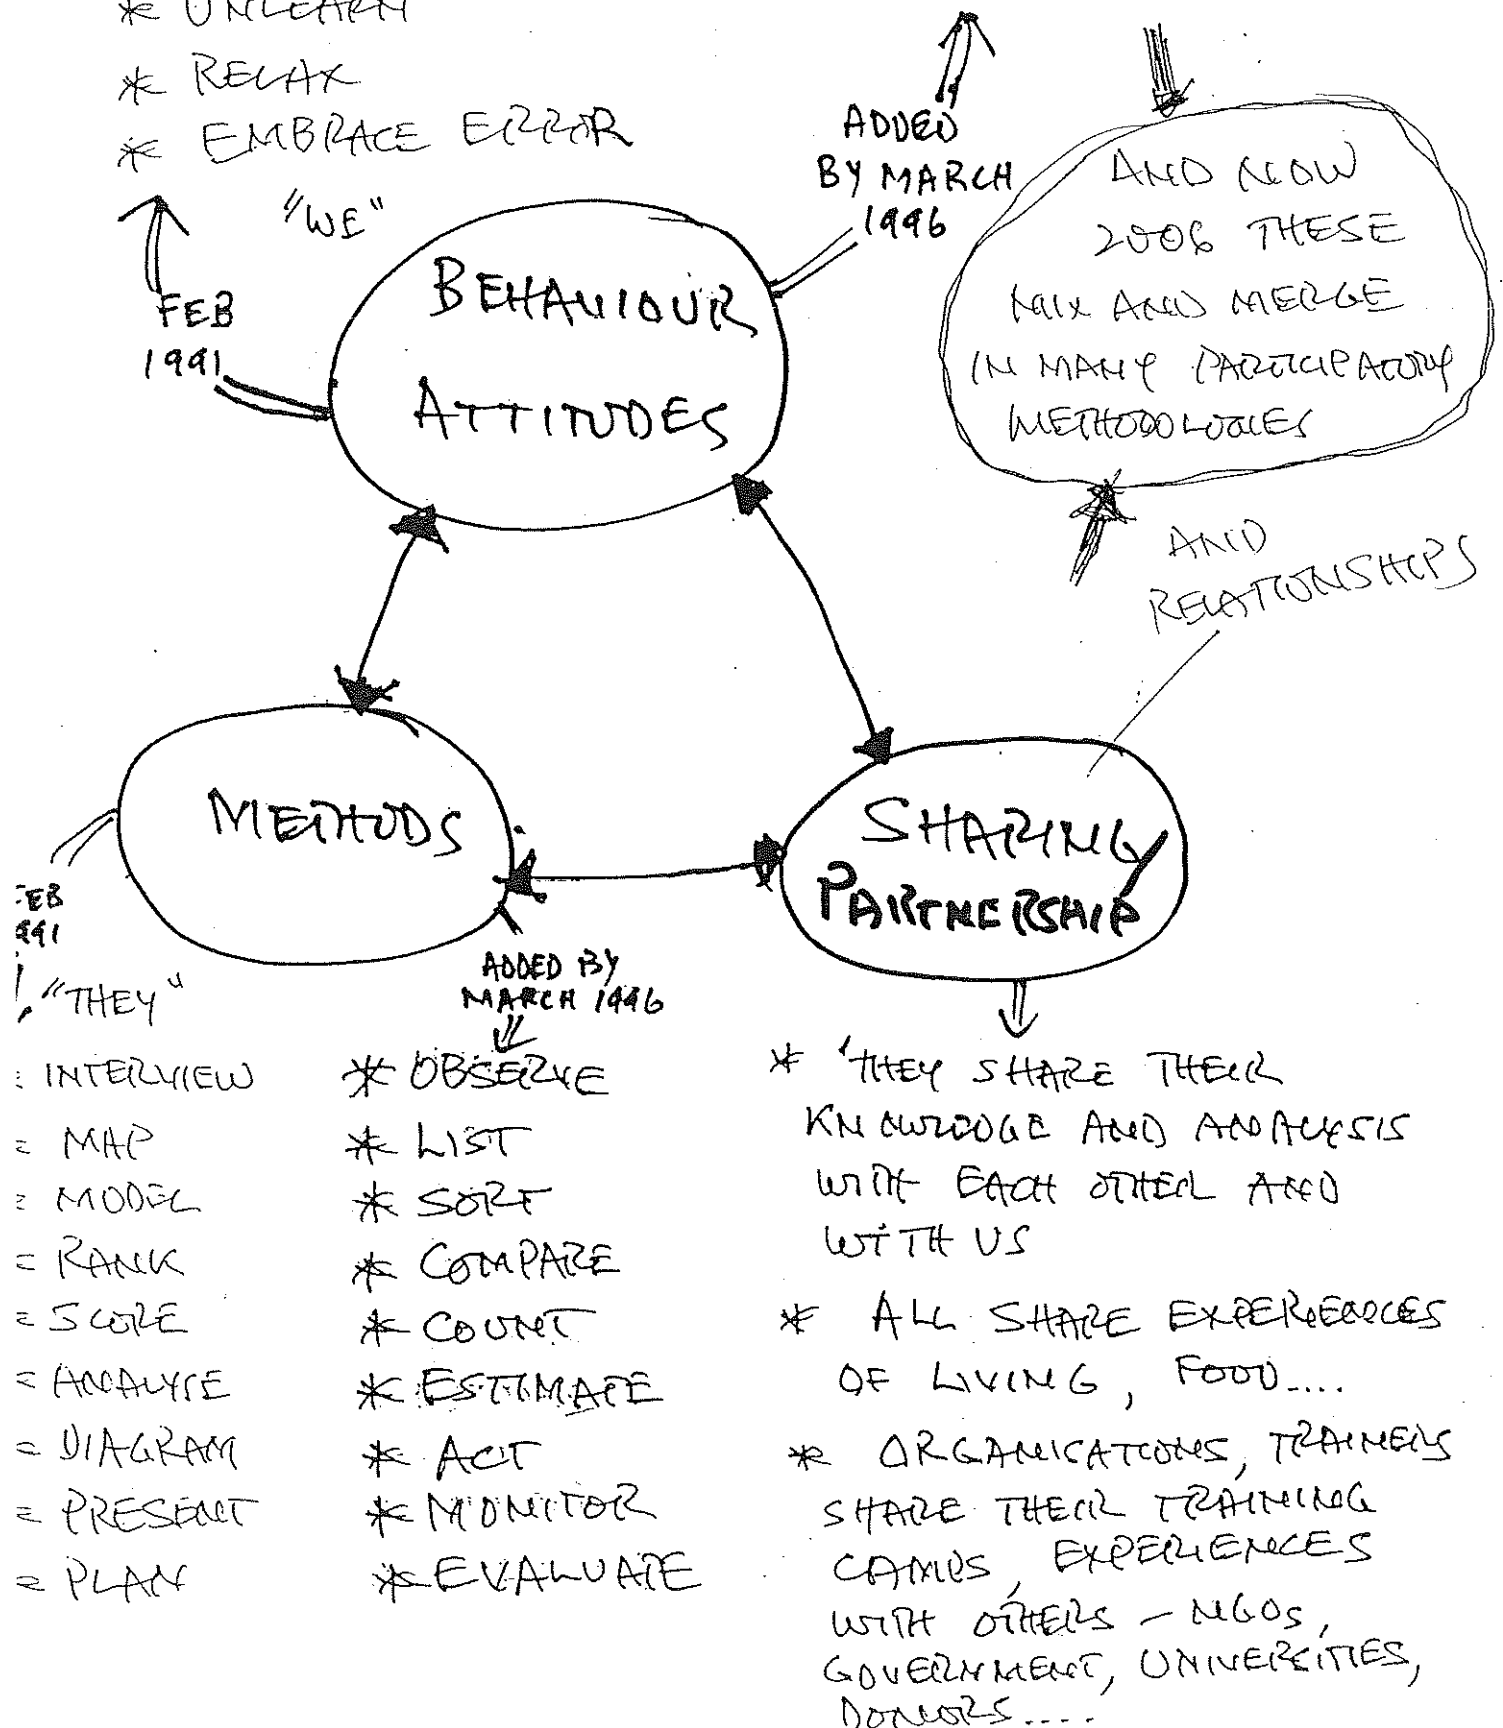 * UNLEARN
* RELAX
* EMBRACE ERROR
"WE"
FEB
1991
BEHAVIOUR
ATTITUDES
ADDED
BY MARCH
1996
AND NOW
2006 THESE
MIX AND MERGE
IN MANY PARTICIPATORY
METHODOLOGIES
AND
RELATIONSHIPS
METHODS
SHARING/
PARTNERSHIP
FEB
1991
"THEY"
INTERVIEW
= MAP
= MODEL
= RANK
= SCORE
= ANALYSE
= DIAGRAM
= PRESENT
= PLAN
ADDED BY
MARCH 1996
* OBSERVE
* LIST
* SORT
* COMPARE
* COUNT
* ESTIMATE
* ACT
* MONITOR
* EVALUATE
* 'THEY SHARE THEIR
KNOWLEDGE AND ANALYSIS
WITH EACH OTHER AND
WITH US
* ALL SHARE EXPERIENCES
OF LIVING, FOOD....
* ORGANISATIONS, TRAINERS
SHARE THEIR TRAINING
CAMPS, EXPERIENCES
WITH OTHERS - NGOS,
GOVERNMENT, UNIVERSITIES,
DONORS....